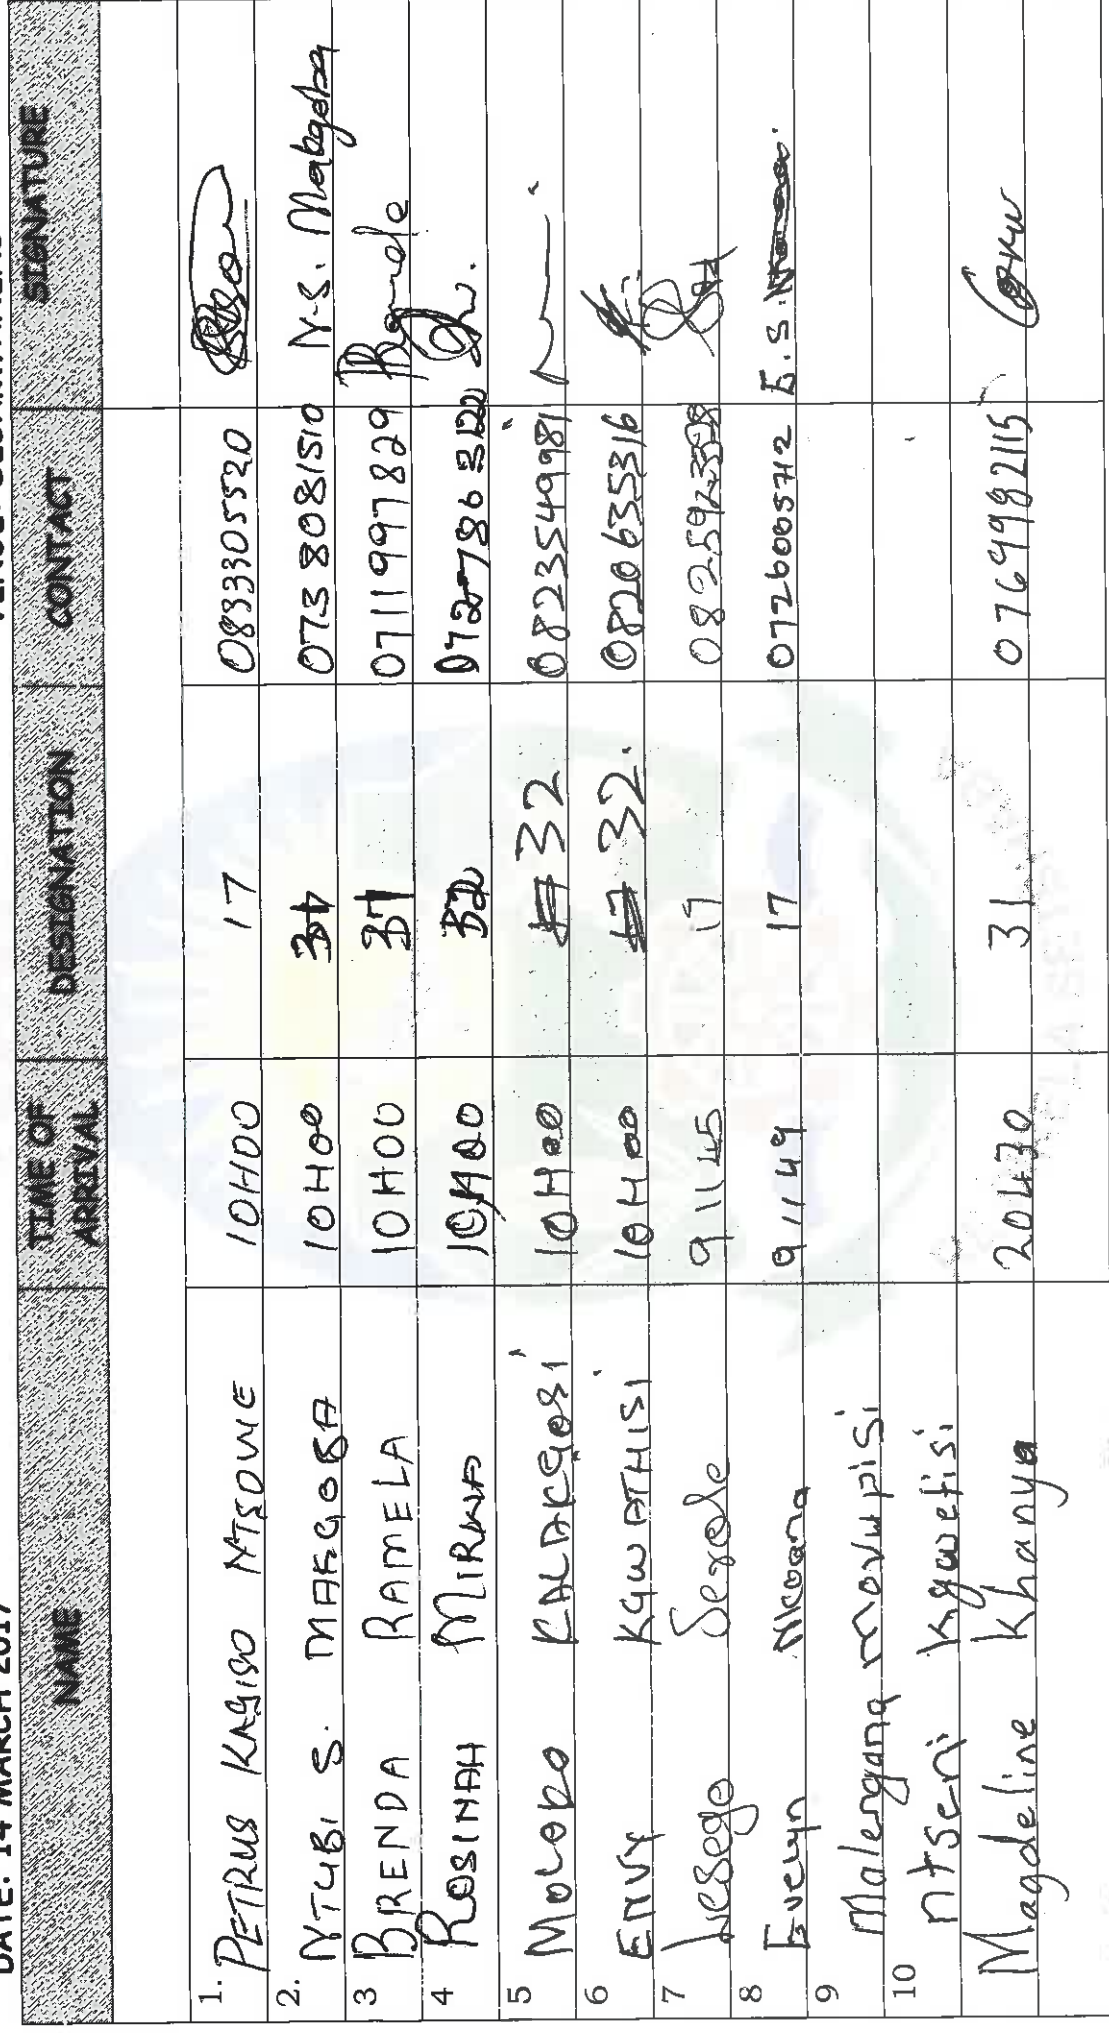 DATE: 14 MARCH 2017
NAME TIME OF ARRIVAL DESIGNATION CONTACT SIGNATURE
1. PETRUS KAGISO NTSOWE 10H00 17 0833305520
2. NTUBI S. MAKGOBA 10H00 31 0738081510 N.S. Makgoba
3 BRENDA RAMELA 10H00 31 0711997829
4 ROSINAH MIRWA 10H00 32 0727863122
5 MOLOKO RALAKGOSI 10H00 # 32 0823549981
6 ENVY KGWATHISI 10H00 # 32. 0820635316
7 Lesego Serele 9H45 19
8 Evelyn Nkoana 9H49 17 0726005712 E.S.
9 Malengana movupisi
10 ntseni kgwetisi
Magdeline Khanya 20430 31 0769982115